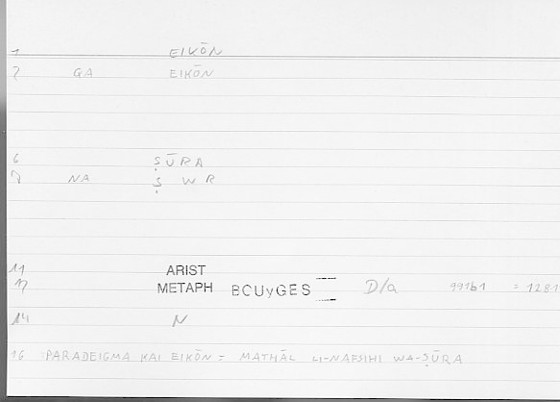 1 EIKŌN
2 GA EIKŌN
6 ṢŪRA
7 NA Ṣ W R
11 ARIST
12 METAPH BOUyGES D/a 991b1 = 128.1
14 N
16 PARADEIGMA KAI EIKŌN = MATHĀL LI-NAFSIHI WA-ṢŪRA